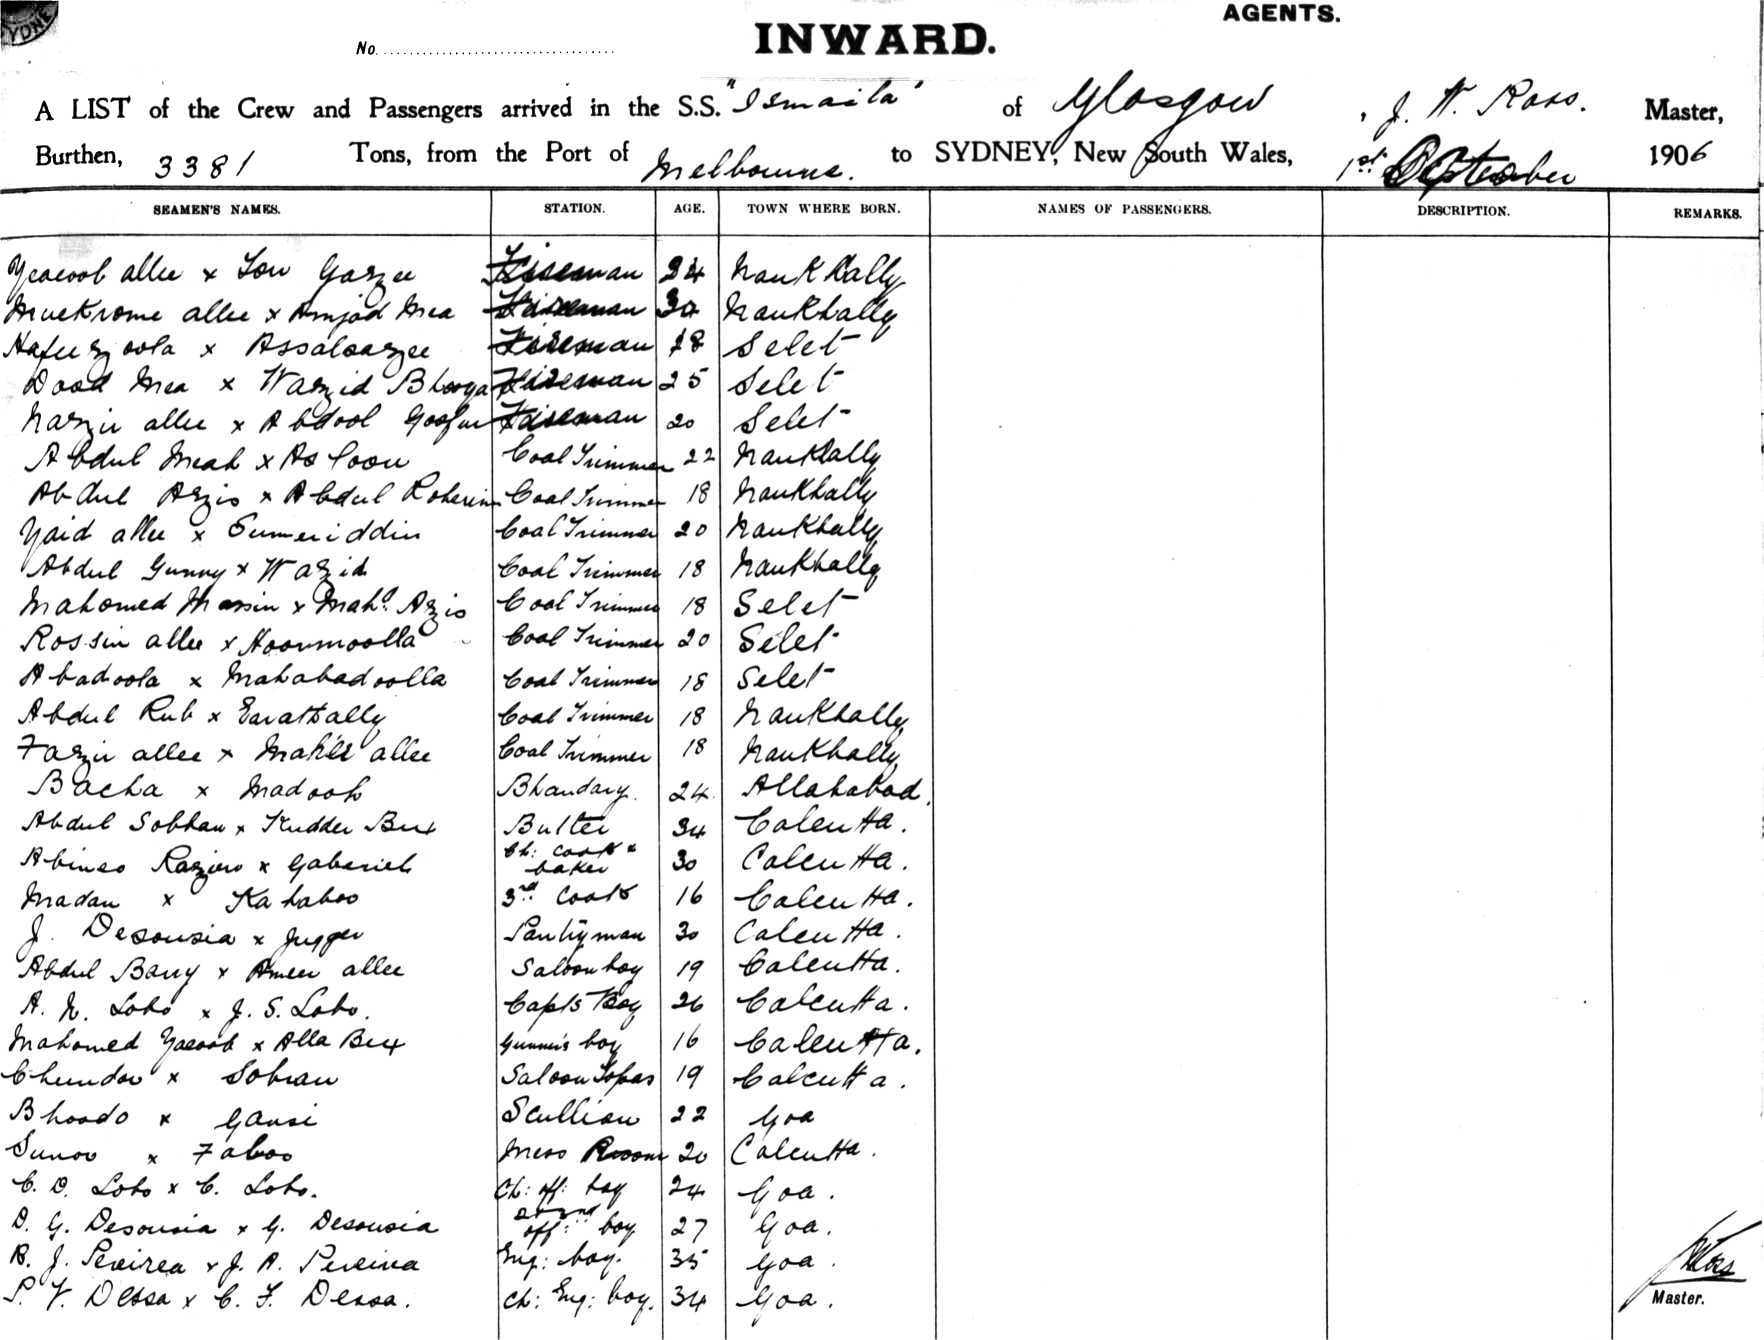 SYDNE
AGENTS.
No.
INWARD.
A LIST of the Crew and Passengers arrived in the S.S. "Ismaila" of Glasgow, J. W. Ross. Master,
Burthen, 3381 Tons, from the Port of Melbourne. to SYDNEY, New South Wales, 1st September 1906
SEAMEN'S NAMES. STATION. AGE. TOWN WHERE BORN. NAMES OF PASSENGERS. DESCRIPTION. REMARKS.
Yeacoob allee x Gazee Fireman 24 Naukhally
allee x Amjad Mea Fireman 30 Naukhally
Hafeezoola x Fireman 18 Selet
Dood Mea x Wazid Bhooya Fireman 25 Selet
Nazir allee x Abdool Goofur Fireman 20 Selet
Abdul Meah x Asloou Coal Trimmer 22 Naukhally
Abdul Azis x Abdul Roherim Coal Trimmer 18 Naukhally
Yaid allee x Sumeriddin Coal Trimmer 20 Naukhally
Abdul Gunny x Wazid Coal Trimmer 18 Naukhally
Mahomed x Mahd. Azis Coal Trimmer 18 Selet
Rossin allee x Noormoolla Coal Trimmer 20 Selet
Abadoola x Mahabadoolla Coal Trimmer 18 Selet
Abdul Rub x Coal Trimmer 18 Naukhally
Fazir allee x allee Coal Trimmer 18 Naukhally
Bacha x Madooh Bhandary. 24 Allahabad.
Abdul Sobhan x Kudder Bux Butler 34 Calcutta.
x Gaberieh Ch: Cook & baker 30 Calcutta.
Madan x Kahaboo 3rd Cook 16 Calcutta.
J. Desousia x Jugger Pantryman 30 Calcutta.
Abdul Barry x Ameer allee Saloon boy 19 Calcutta.
A. N. Lobo x J. S. Lobo. Capts Boy 26 Calcutta.
Mahomed Yacoob x Alla Bux Gunners boy 16 Calcutta.
Chundoo x Sobran Saloon Topas 19 Calcutta.
Bhoodo x Gansi Scullion 22 Goa
Sunoo x Faboo Mess Room 20 Calcutta.
C. D. Lobo x C. Lobo. Ch: off: boy 24 Goa.
D. G. Desousia x G. Desousia 2nd off: boy 27 Goa.
R. J. Pereirea x J. A. Pereira Eng: boy. 35 Goa.
P. V. Dessa x C. F. Dessa. Ch: Eng: boy. 34 Goa.
Master.